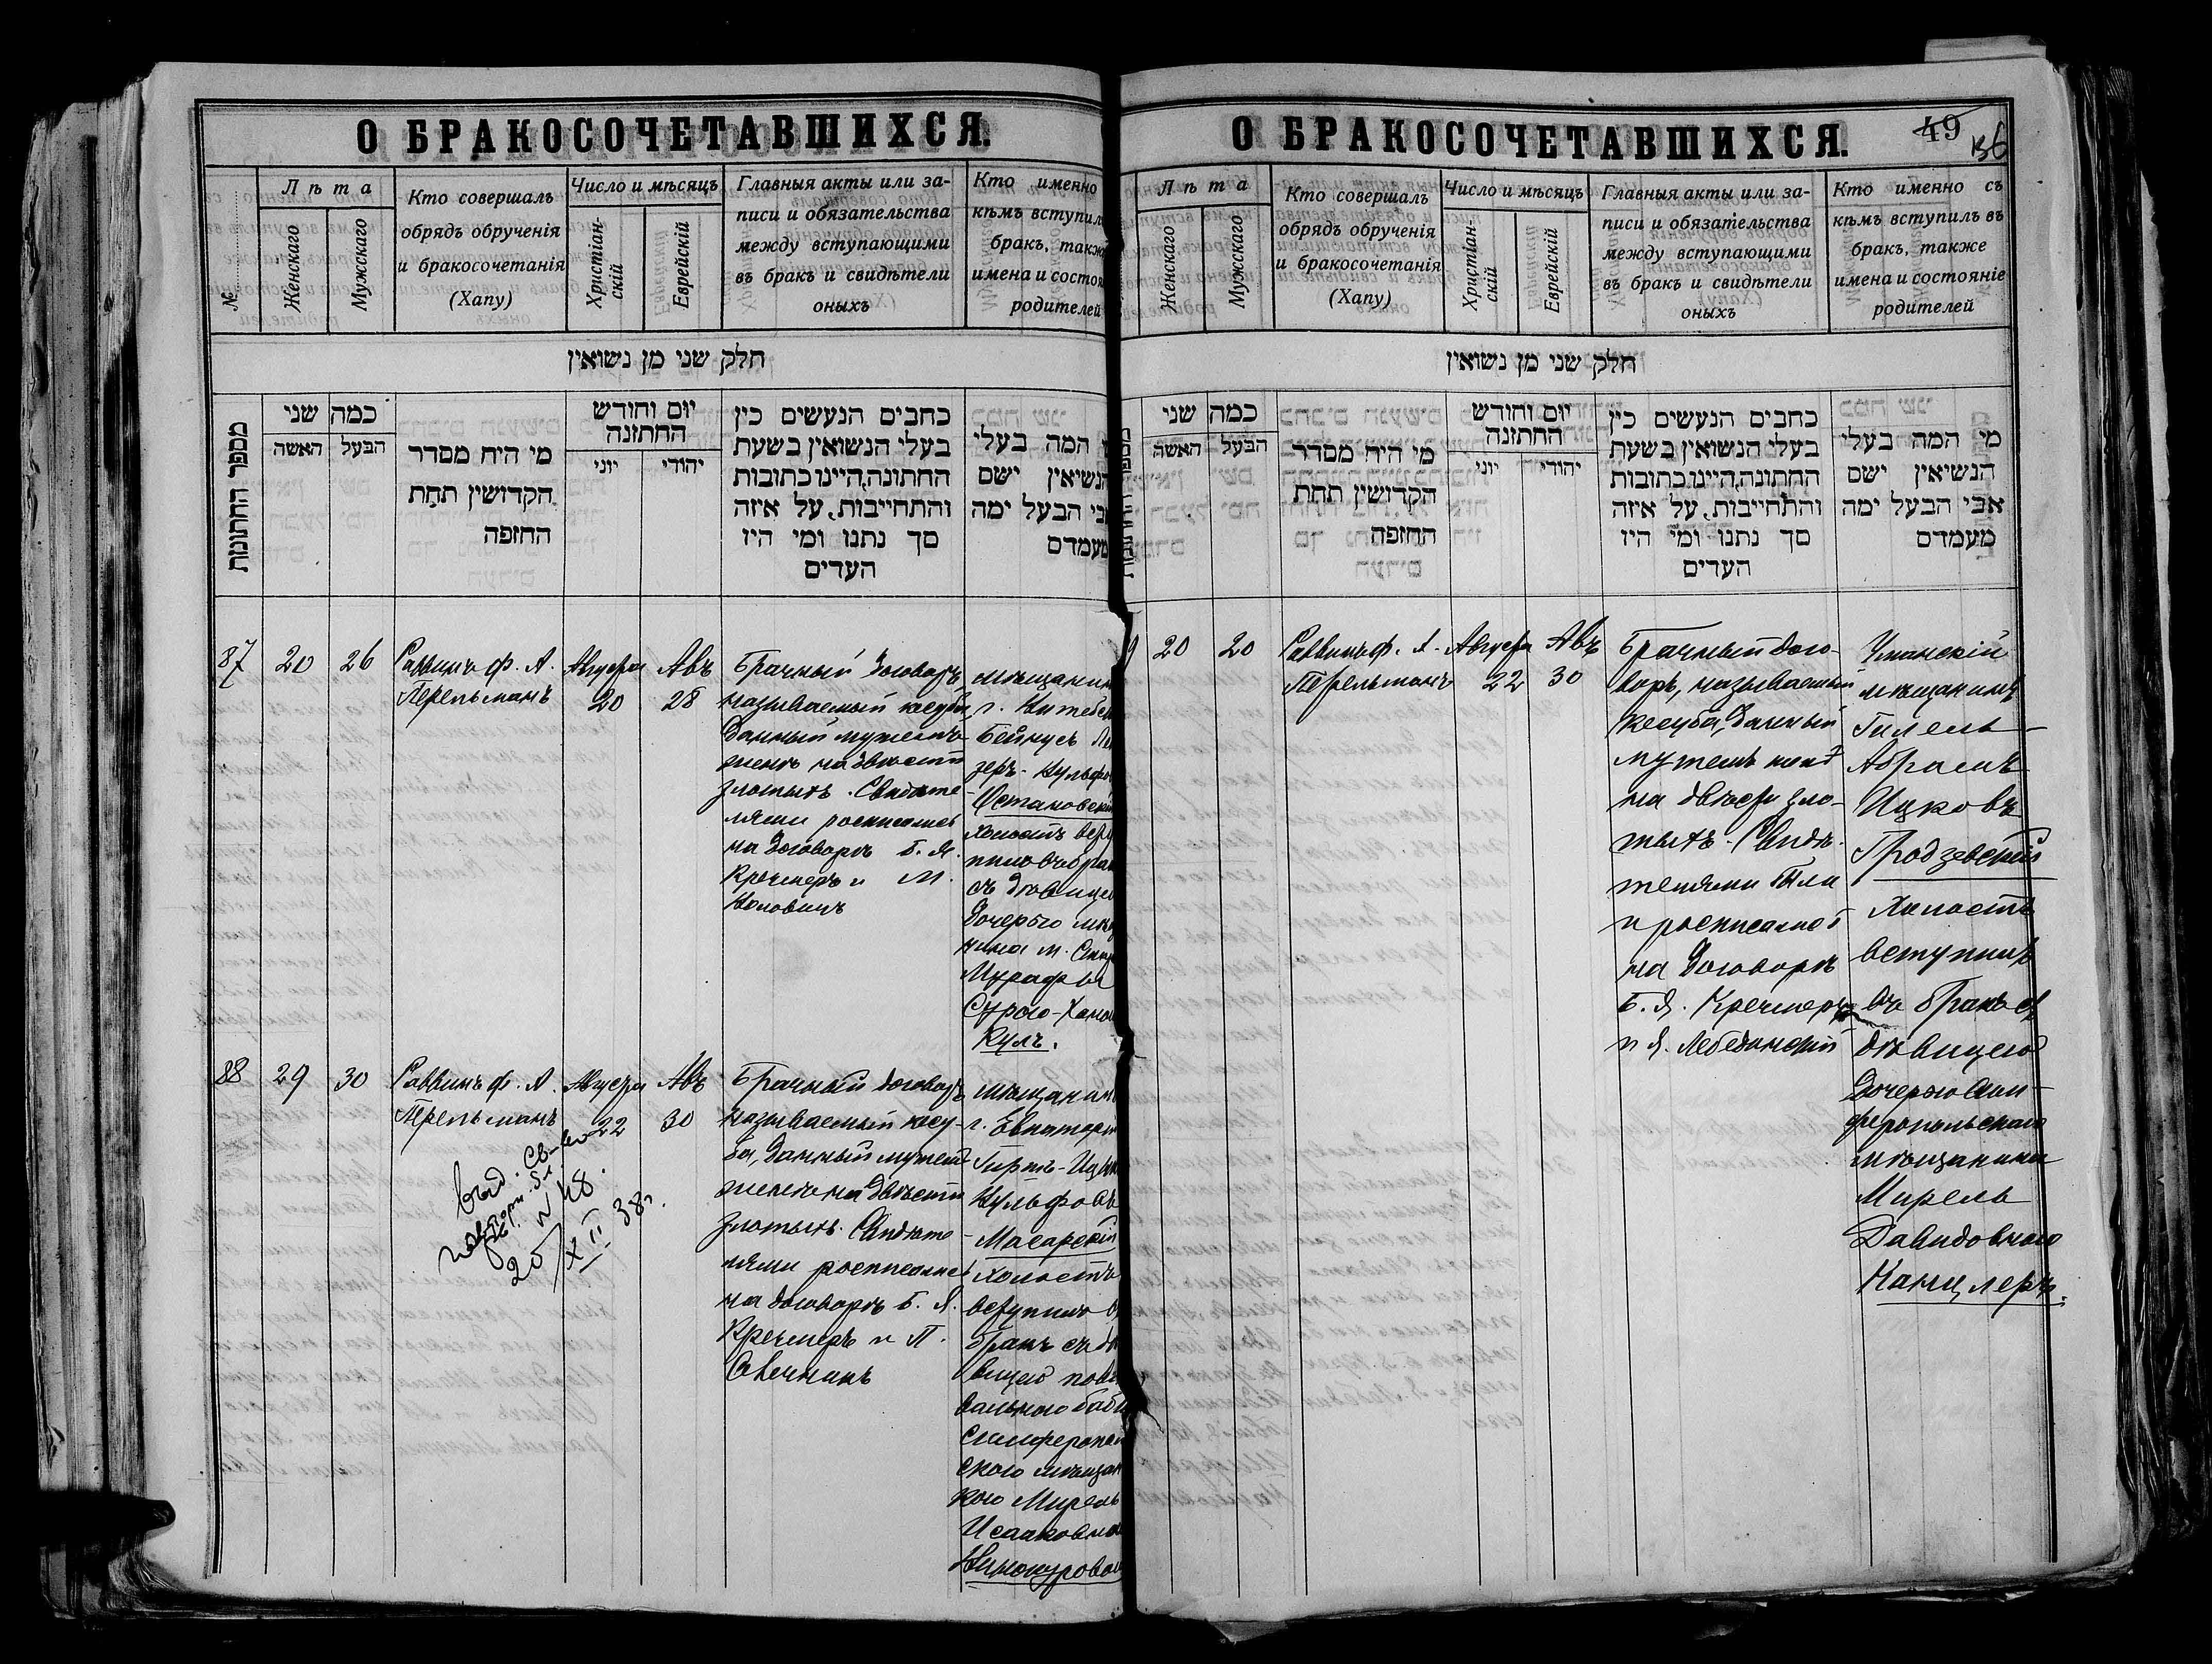 О БРАКОСОЧЕТАВШИХСЯ.
№
Лѣта
Женскаго
Мужскаго
Кто совершалъ
обрядъ обрученія
и бракосочетанія
(Хапу)
Число и мѣсяцъ
Христіан-
скій
Еврейскій
Главныя акты или за-
писи и обязательства
между вступающими
въ бракъ и свидѣтели
оныхъ
Кто именно
кѣмъ вступил
бракъ, также
имена и состоя
родителей
חלק שני מן נשואין
מספר החתונות
כמה שני
האשה
הבעל
מי היח מסדר
הקדושין תחת
החזפה
יום וחודש
החתזנה
יוני
יהודי
כחבים הנעשים כין
בעלי הנשואין בשעת
החתונה, היינו כתובות
והתחייבות, על איזה
סך נתנו ומי היז
העדים
המה בעלי
הנשיאין ישם
אבי הבעל ימה
מעמדם
87
20
26
Раввинъ ф. А.
Перельманъ
Августа
20
Авъ
28
Брачный договоръ
называемый кесуба
данный мужемъ
женѣ на двѣсти
злотыхъ. Свидѣте-
лями росписались
на договорѣ Б. Я.
Кречмеръ и М.
мѣщанинъ
г. Витебс
Бейнусъ Ле
зеръ-Вульфо
Остановскі
холостъ всту
пилъ въ бра
съ дѣвицею
дочерью мѣщ
нина м.
Мурафы
Сурою-Хано
Кулъ.
88
29
30
Раввинъ ф. А.
Перельманъ
Августа
22
Авъ
30
выд. Св-во
повторн.
№ 48.
20/XII 38г.
Брачный договоръ
называемый кесу-
ба, данный мужемъ
женѣ на двѣсти
злотыхъ. Свидѣте-
лями росписались
на договорѣ Б. Я.
Кречмеръ и П.
Свечникъ
мѣщанинъ
г. Евпатор
Гиршъ-Ицык
Вульфовъ
Масарскій
холостъ
вступилъ въ
бракъ съ дѣ
вицею пови
вальною бабк
симферополь
скою мѣщан
кою Мирель
Исааковною
Винокуровою
О БРАКОСОЧЕТАВШИХСЯ.
49
136
Лѣта
Женскаго
Мужскаго
Кто совершалъ
обрядъ обрученія
и бракосочетанія
(Хапу)
Число и мѣсяцъ
Христіан-
скій
Еврейскій
Главныя акты или за-
писи и обязательства
между вступающими
въ бракъ и свидѣтели
оныхъ
Кто именно съ
кѣмъ вступилъ въ
бракъ, также
имена и состояніе
родителей
חלק שני מן נשואין
כמה שני
האשה
הבעל
מי היח מסדר
הקדושין תחת
החזפה
יום וחודש
החתזנה
יוני
יהודי
כחבים הנעשים כין
בעלי הנשואין בשעת
החתונה, היינו כתובות
והתחייבות, על איזה
סך נתנו ומי היז
העדים
מי המה בעלי
הנשיאין ישם
אבי הבעל ימה
מעמדם
9
20
20
Раввинъ ф. А.
Перельманъ
Августа
22
Авъ
30
Брачный дого-
воръ, называемый
кесуба, данный
мужемъ женѣ
на двѣсти зло-
тыхъ. Свидѣ-
телями были
и росписались
на договорѣ
Б. Я. Кречмеръ
и Я. Лебединскій
Уманскій
мѣщанинъ
Гилель-
Абрамъ
Ицковъ
Гродзевскій
Холостъ
вступилъ
въ бракъ съ
дѣвицею
дочерью Сим-
феропольскаго
мѣщанина
Мирель
Давидовною
Канцлеръ.